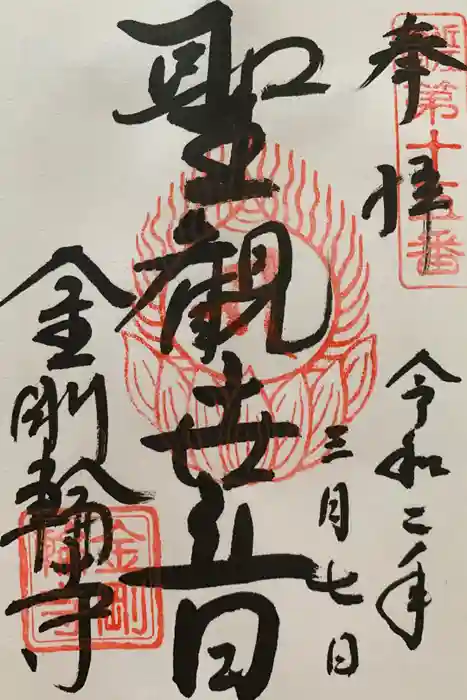 奉拝
令和二年
三月七日
聖観世音
金剛輪寺
第十五番
金剛輪寺